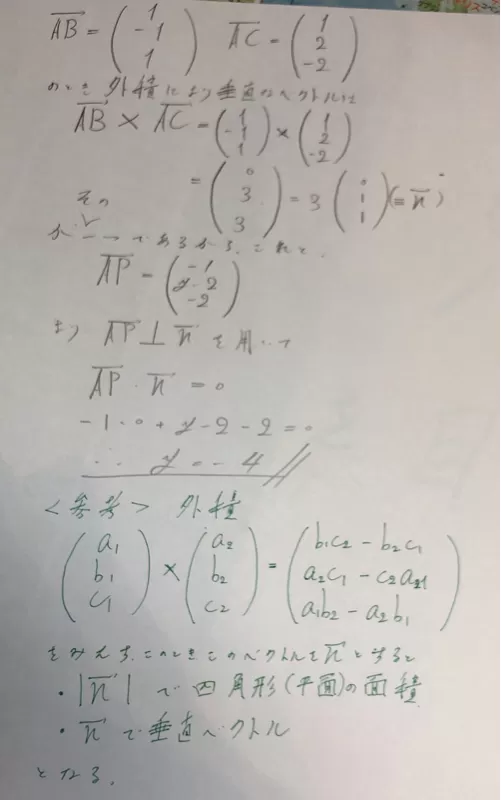 AB = (1 -1 1) AC = (1 2 -2)
のとき 外積により垂直なベクトルは
AB × AC = (1 -1 1) × (1 2 -2)
= (0 3 3) = 3 (0 1 1) (= n)
その
が一つであるから、これと、
AP = (-1 y-2 -2)
より AP ⊥ n を用いて
AP · n = 0
-1・0 + y - 2 - 2 = 0
∴ y = -4
<参考> 外積
(a1 b1 c1) × (a2 b2 c2) = (b1c2 - b2c1 a2c1 - c2a1 a1b2 - a2b1)
をみたす、このときこのベクトルをnとすると
・|n| で 四角形(平面)の面積
・n で垂直ベクトル
となる。